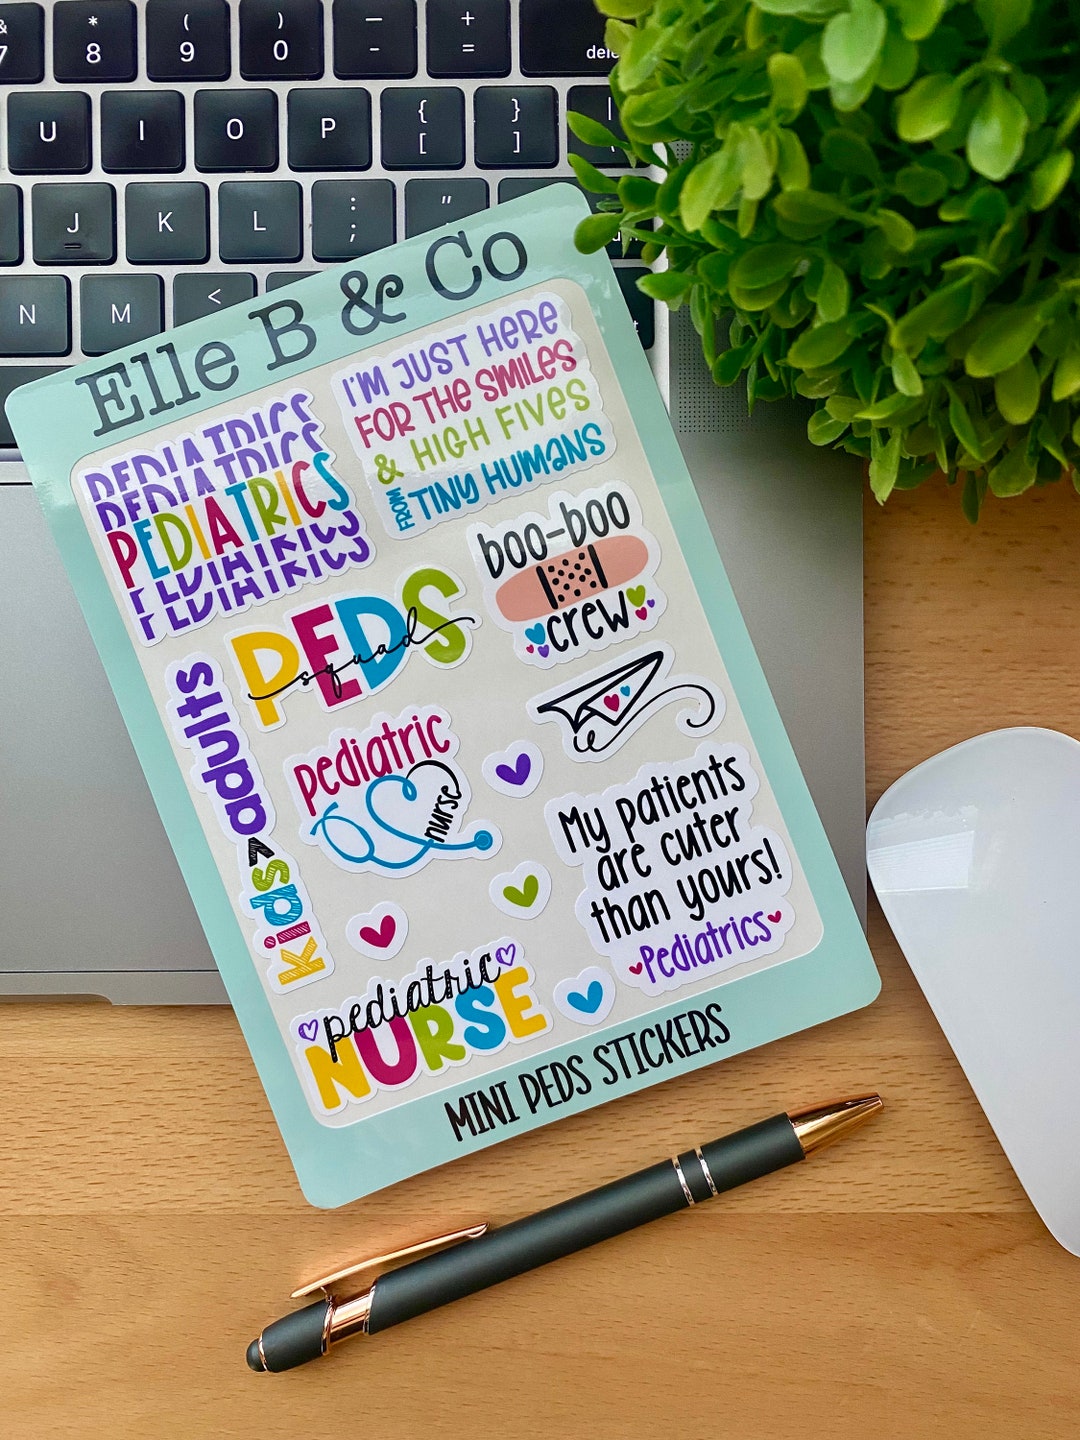 &
7
*
8
(
9
)
0
_
-
+
=
dele
U
I
O
P
{
[
}
]
|
J
K
L
:
;
"
N
M
<
Elle B & Co
PEDIATRICS
PEDIATRICS
PEDIATRICS
PEDIATRICS
PEDIATRICS
I'M JUST HERE
FOR THE SMILES
& HIGH FIVES
FROM TINY HUMANS
boo-boo
crew
PEDS
squad
kids>adults
pediatric
nurse
My patients
are cuter
than yours!
Pediatrics
pediatric
NURSE
MINI PEDS STICKERS